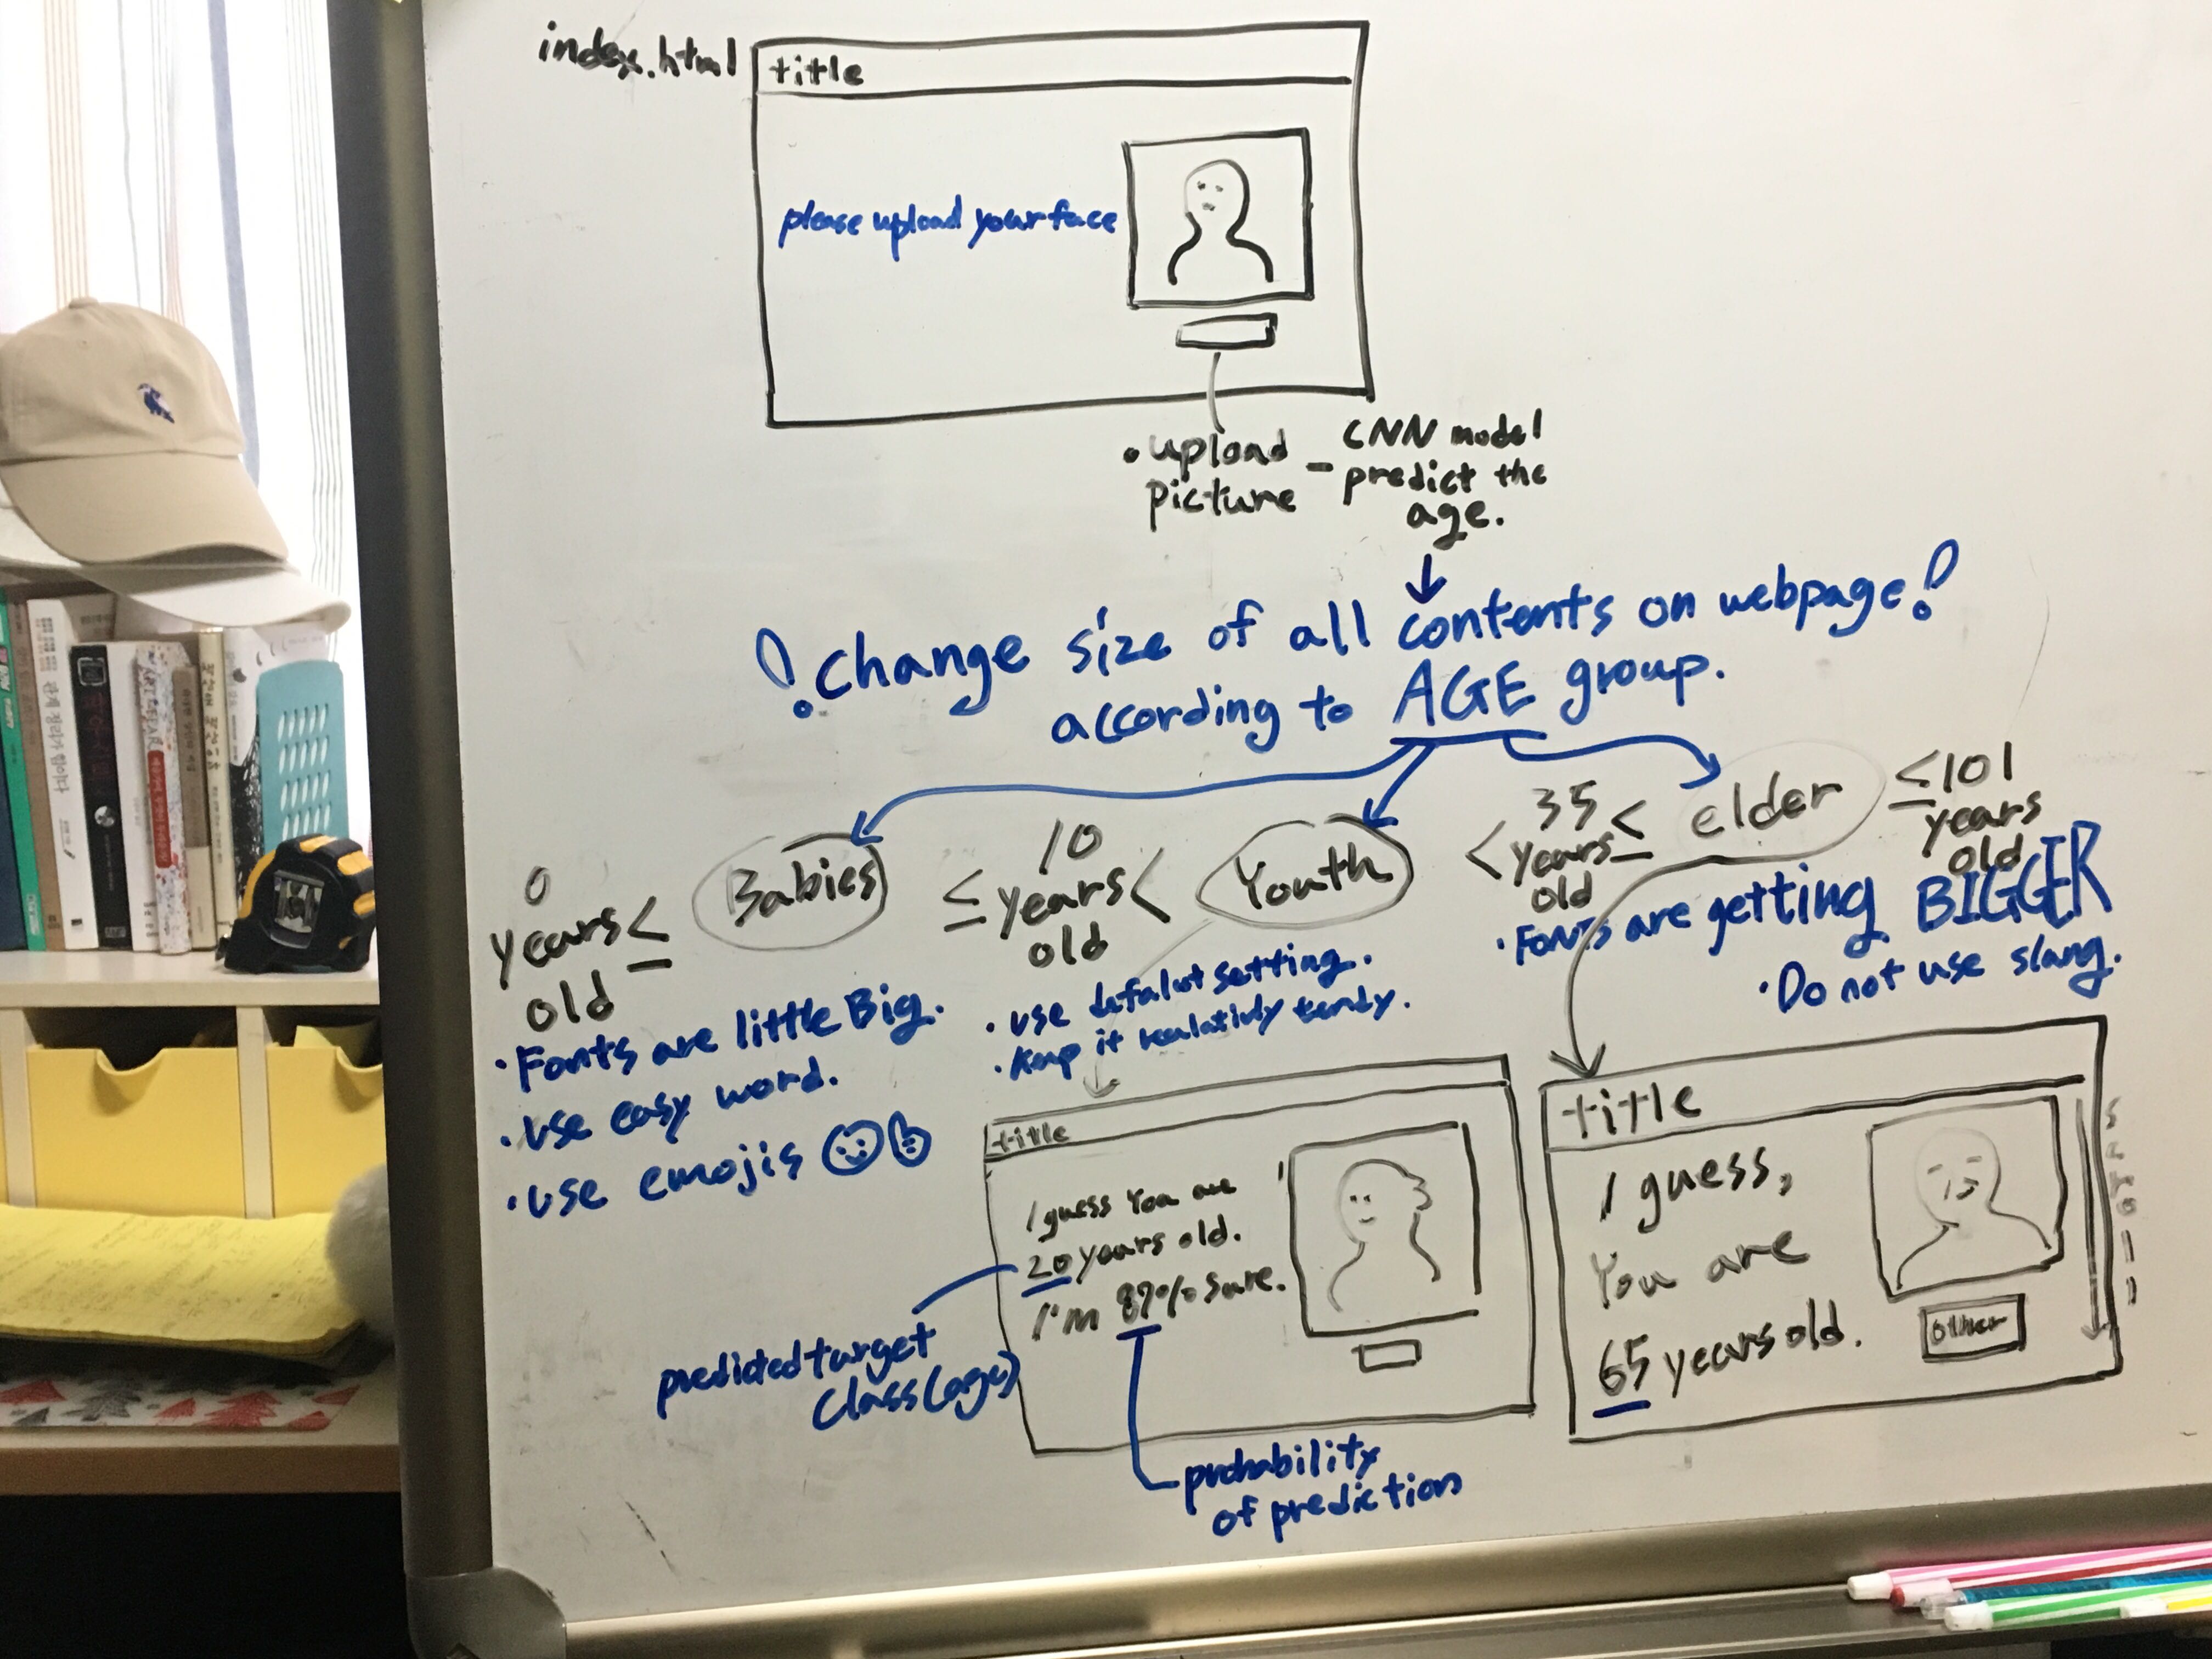 index.html
title
please upload your face
• upload
picture
- CNN model
predict the
age.
↓
! Change size of all contents on webpage!
according to AGE group.
0
years ≤
old
Babies
≤
10
years <
old
Youth
<
35
years ≤
old
elder
≤ 101
years
old
• Fonts are little Big.
• use easy word.
• use emojis
• use defalut setting.
• Fonts are getting BIGGER
• Do not use slang.
title
I guess You are
20 years old.
I'm 87% sure.
predicted target
class (age)
probability
of prediction
title
I guess,
You are
65 years old.
other